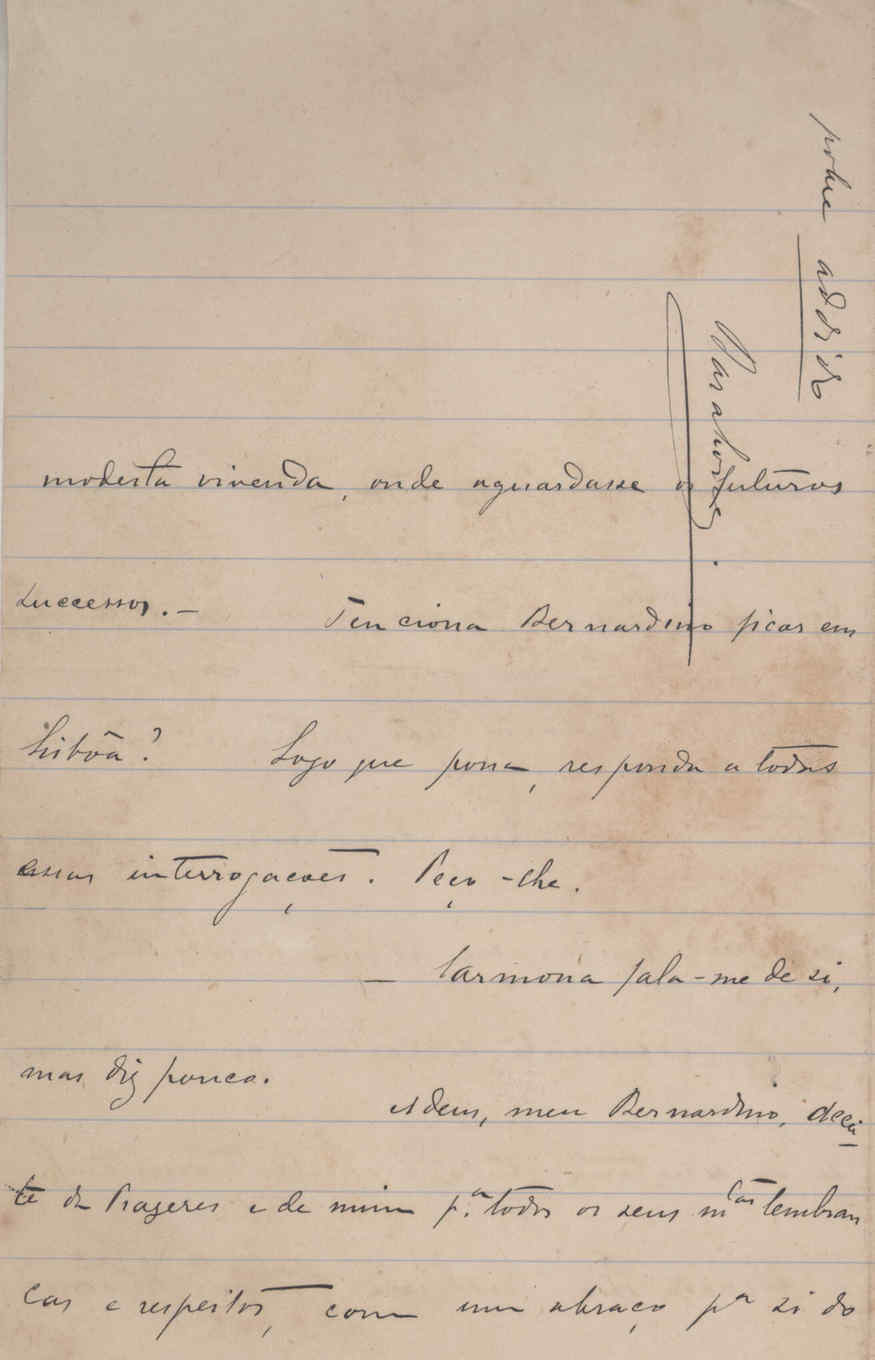 modesta vivenda, onde aguardasse os futuros
successos. —     Tenciona Bernardino ficar em
Lisbôa?     Logo que possa, responda a todas
essas interrogações. Peço-lhe.
— Carmona fala-me de si,
mas diz pouco.
Adeus, meu Bernardino, acei-
te de Prazeres e de mim p.ª todos os seus m.tas lembran
ças e respeitos, com um abraço pª si do
pobre addido
Barahona.